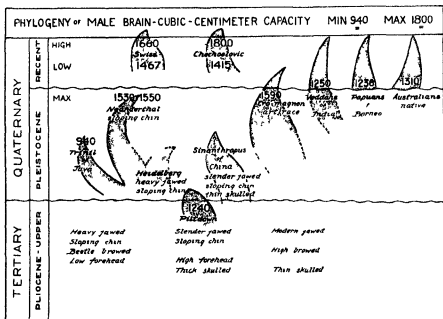 PHYLOGENY OF MALE BRAIN-CUBIC-CENTIMETER CAPACITY MIN 940 MAX 1800
QUATERNARY
RECENT
HIGH
1660
Swiss
1800
Chechoslovic
LOW
1467
1415
1250
Veddans
of
Indian
1238
Papuans
Borneo
1310
Australians
native
PLEISTOCENE
MAX
1530
1550
Neanderthal
sloping chin
1590
Cro-magnon
art race
940
Trinil
Java
Heidelberg
heavy jawed
sloping chin
Sinanthropus
of
China
slender jawed
sloping chin
thin skulled
TERTIARY
PLIOCENE-UPPER
1240
Piltdown
Heavy jawed
Sloping chin
Beetle browed
Low forehead
Slender jawed
Sloping chin
High forehead
Thick skulled
Modern jawed
High browed
Thin skulled